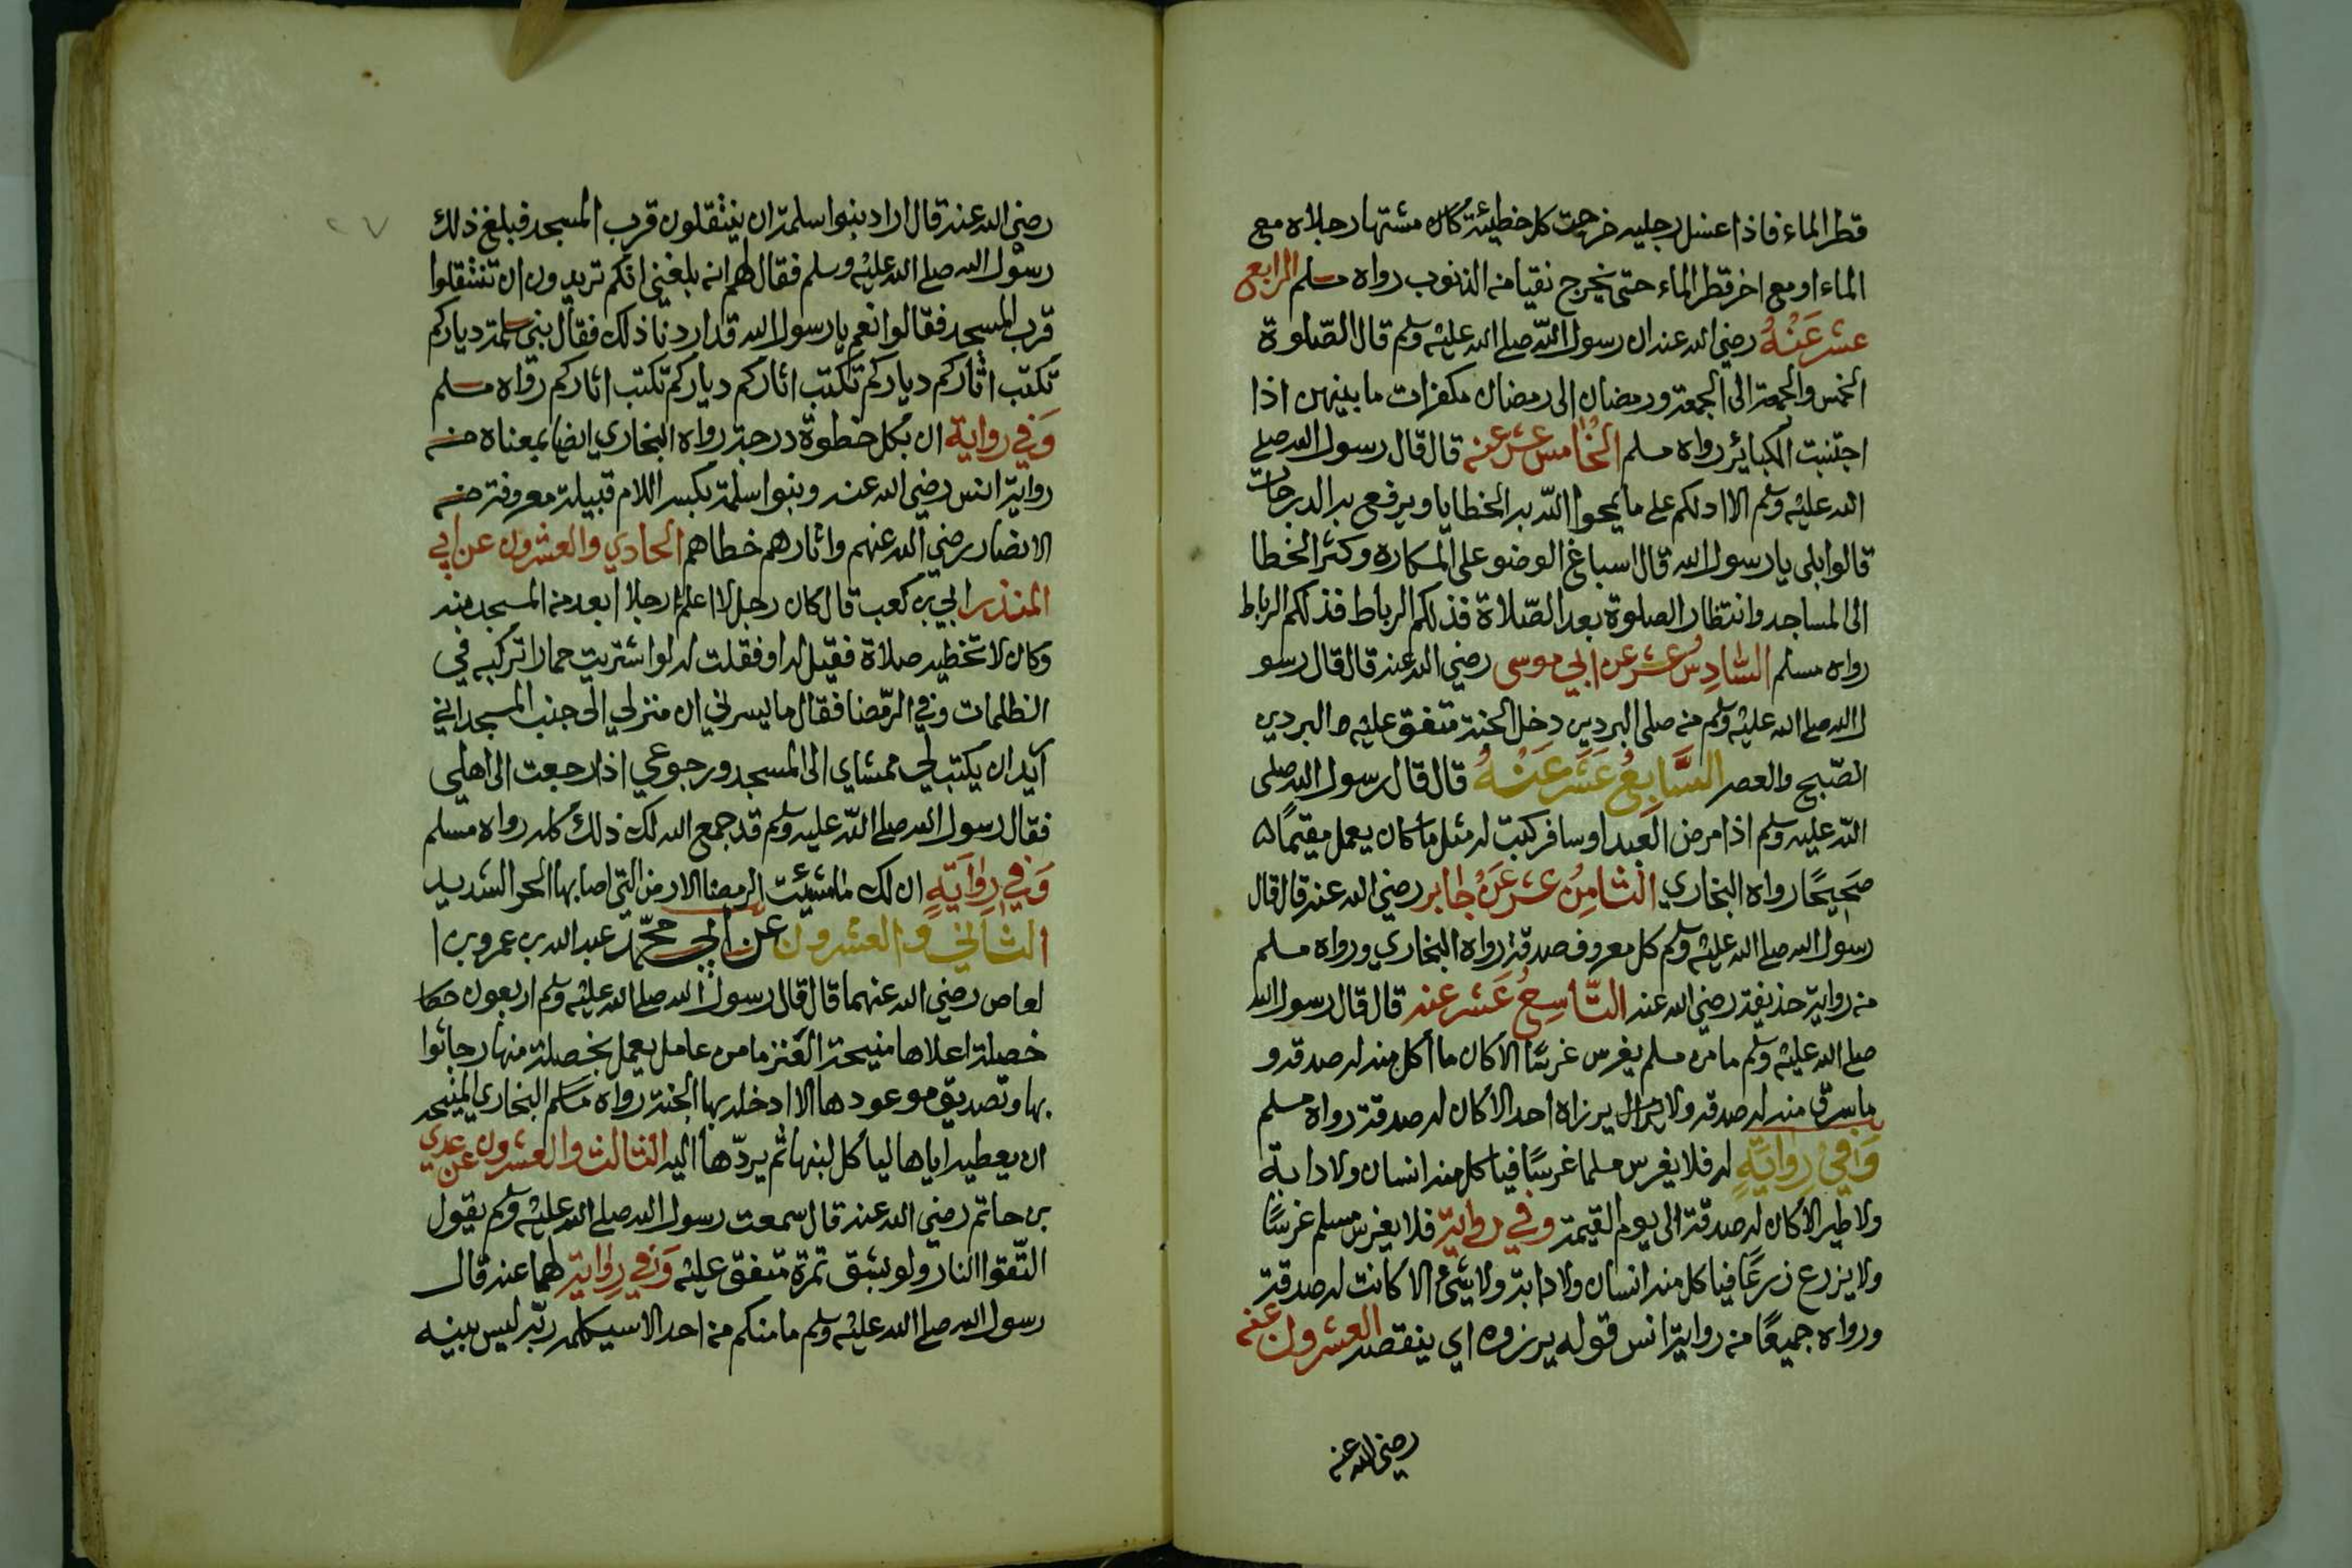 قطر الماء فاذا غسل رجليه خرجت كل خطيئة كان مشتها رجلاه مع
الماء او مع اخر قطر الماء حتى يخرج نقيا من الذنوب رواه مسلم الرابع
عشر عَنْهُ رضي الله عنه ان رسول الله صلى الله عليه وسلم قال الصّلوة
الخمس والجمعة الى الجمعة ورمضان الى رمضان مكفرات ما بينهن اذا
اجتنبت الكبائر رواه مسلم الخامس عشر عنه قال قال رسول الله صلى
الله عليه وسلم الا ادلكم على ما يمحوا الله به الخطايا ويرفع به الدرجات
قالوا بلى يا رسول الله قال اسباغ الوضو على المكاره وكثر الخطا
الى المساجد وانتظار الصلوة بعد الصّلاة فذلكم الرباط فذلكم الرباط
رواه مسلم السّادِس عشر عن ابي موسى رضي الله عنه قال قال رسو
ل الله صلى الله عليه وسلم من صلى البردين دخل الجنة متفق عليه البردين
الصّبح والعصر السَّابِعُ عَشَر عَنْهُ قال قال رسول الله صلى
الله عليه وسلم اذا مرض العبد او سافر كتب له مثل ما كان يعمل مقيمًا
صَحِيحًا رواه البخاري الثامِنُ عشر عَنْ جابر رضي الله عنه قال قال
رسول الله صلى الله عليه وسلم كل معروف صدقة رواه البخاري ورواه مسلم
من رواية حذيفة رضي الله عنه التّاسِعُ عَشر عنه قال قال رسول الله
صلى الله عليه وسلم ما من مسلم يغرس غرسًا الا كان ما أكل منه له صدقه و
ما سرق منه له صدقه ولا يرزاه احد الا كان له صدقة رواه مسلم
وَفي رِوايَةٍ له فلا يغرس مسلما غرسًا فياكل منه انسان ولا دابة
ولا طير الا كان له صدقة الى يوم القيمة وفي رواية فلا يغرس مسلم غرسًا
ولا يزرع زرعًا فياكل منه انسان ولا دابة ولا شئ الا كانت له صدقة
ورواه جميعًا من رواية انس قوله يرزوه اي ينقصه العشرون عنه
رضي الله عنه
رضي الله عنه قال اراد بنوا سلمة ان ينتقلون قرب المسجد فبلغ ذلك
رسول الله صلى الله عليه وسلم فقال لهم انه بلغني انكم تريدون ان تنتقلوا
قرب المسجد فقالوا نعم يا رسول الله قد اردنا ذلك فقال بني سلمة دياركم
تكتب اثاركم دياركم تكتب اثاركم دياركم تكتب اثاركم رواه مسلم
وَفي رواية ان بكل خطوة درجة رواه البخاري ايضا بمعناه من
رواية انس رضي الله عنه وبنوا سلمة بكسر اللام قبيلة معروفة من
الانصار رضي الله عنهم واثارهم خطاهم الحادي والعشرون عن ابي
المنذر ابي بن كعب قال كان رجل لا اعلم رجلا ابعد من المسجد منه
وكان لا تخطيه صلاة فقيل له او فقلت له لو اشتريت حمارا تركبه في
الظلمات وفي الرّمضا فقال ما يسرني ان منزلي الى جنب المسجد اني
اريد ان يكتب لي ممشاي الى المسجد ورجوعي اذا رجعت الى اهلي
فقال رسول الله صلى الله عليه وسلم قد جمع الله لك ذلك كله رواه مسلم
وَفي رِوايَةٍ ان لك ما الرمضا الارض التي اصابها الحر الشديد
الثاني و العشرون عن ابي محمّد عبد الله بن عمرو بن ا
لعاص رضي الله عنهما قال قال رسول الله صلى الله عليه وسلم اربعون
خصلة اعلاها منيحة العنز ما من عامل يعمل بخصلة منها رجا ثوا
بها وتصديق موعودها الا ادخله بها الجنة رواه البخاري المنيحه
ان يعطيه اياها لياكل لبنها ثم يردّها اليه الثالث والعشرون عن عدي
بن حاتم رضي الله عنه قال سمعت رسول الله صلى الله عليه وسلم يقول
اتّقوا النار ولو بشق تمرة متفق عليه وَفي رِواية لهما عنه قال
رسول الله صلى الله عليه وسلم ما منكم من احد الا سيكلمه ربّه ليس بينه